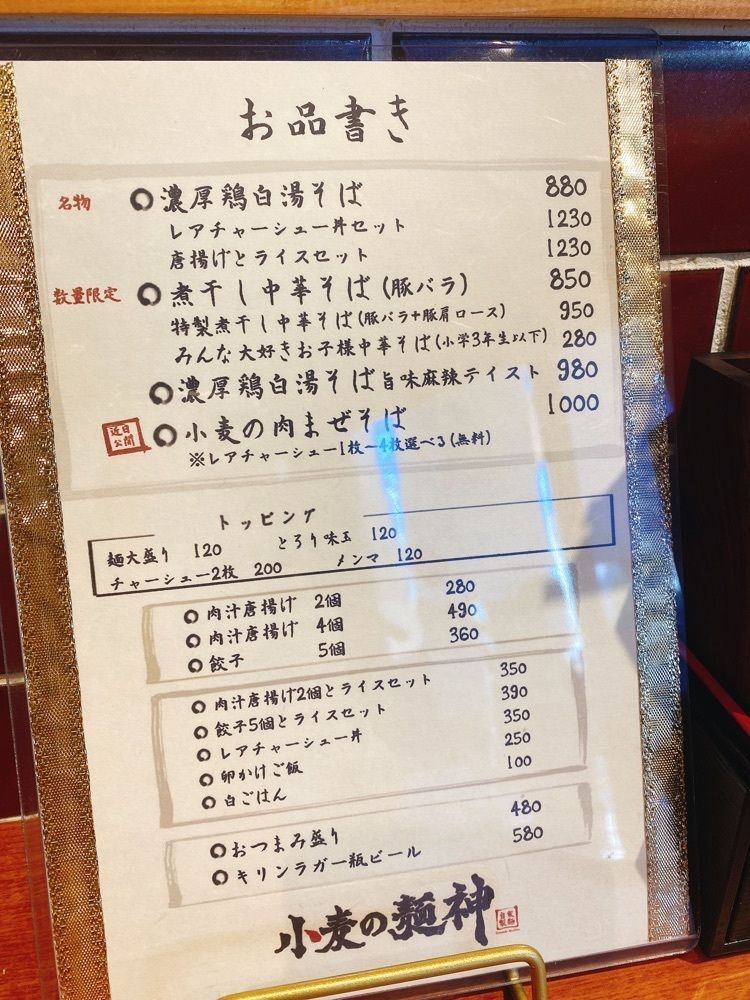 お品書き
名物 濃厚鶏白湯そば 880
レアチャーシュー丼セット 1230
唐揚げとライスセット 1230
数量限定 煮干し中華そば(豚バラ) 850
特製煮干し中華そば(豚バラ+豚肩ロース) 950
みんな大好きお子様中華そば(小学3年生以下) 280
濃厚鶏白湯そば旨味麻辣テイスト 980
近日公開 小麦の肉まぜそば 1000
※レアチャーシュー1枚〜4枚選べる(無料)
トッピング
麺大盛り 120 とろり味玉 120
チャーシュー2枚 200 メンマ 120
肉汁唐揚げ 2個 280
肉汁唐揚げ 4個 490
餃子 5個 360
肉汁唐揚げ2個とライスセット 350
餃子5個とライスセット 390
レアチャーシュー丼 350
卵かけご飯 250
白ごはん 100
おつまみ盛り 480
キリンラガー瓶ビール 580
小麦の麺神